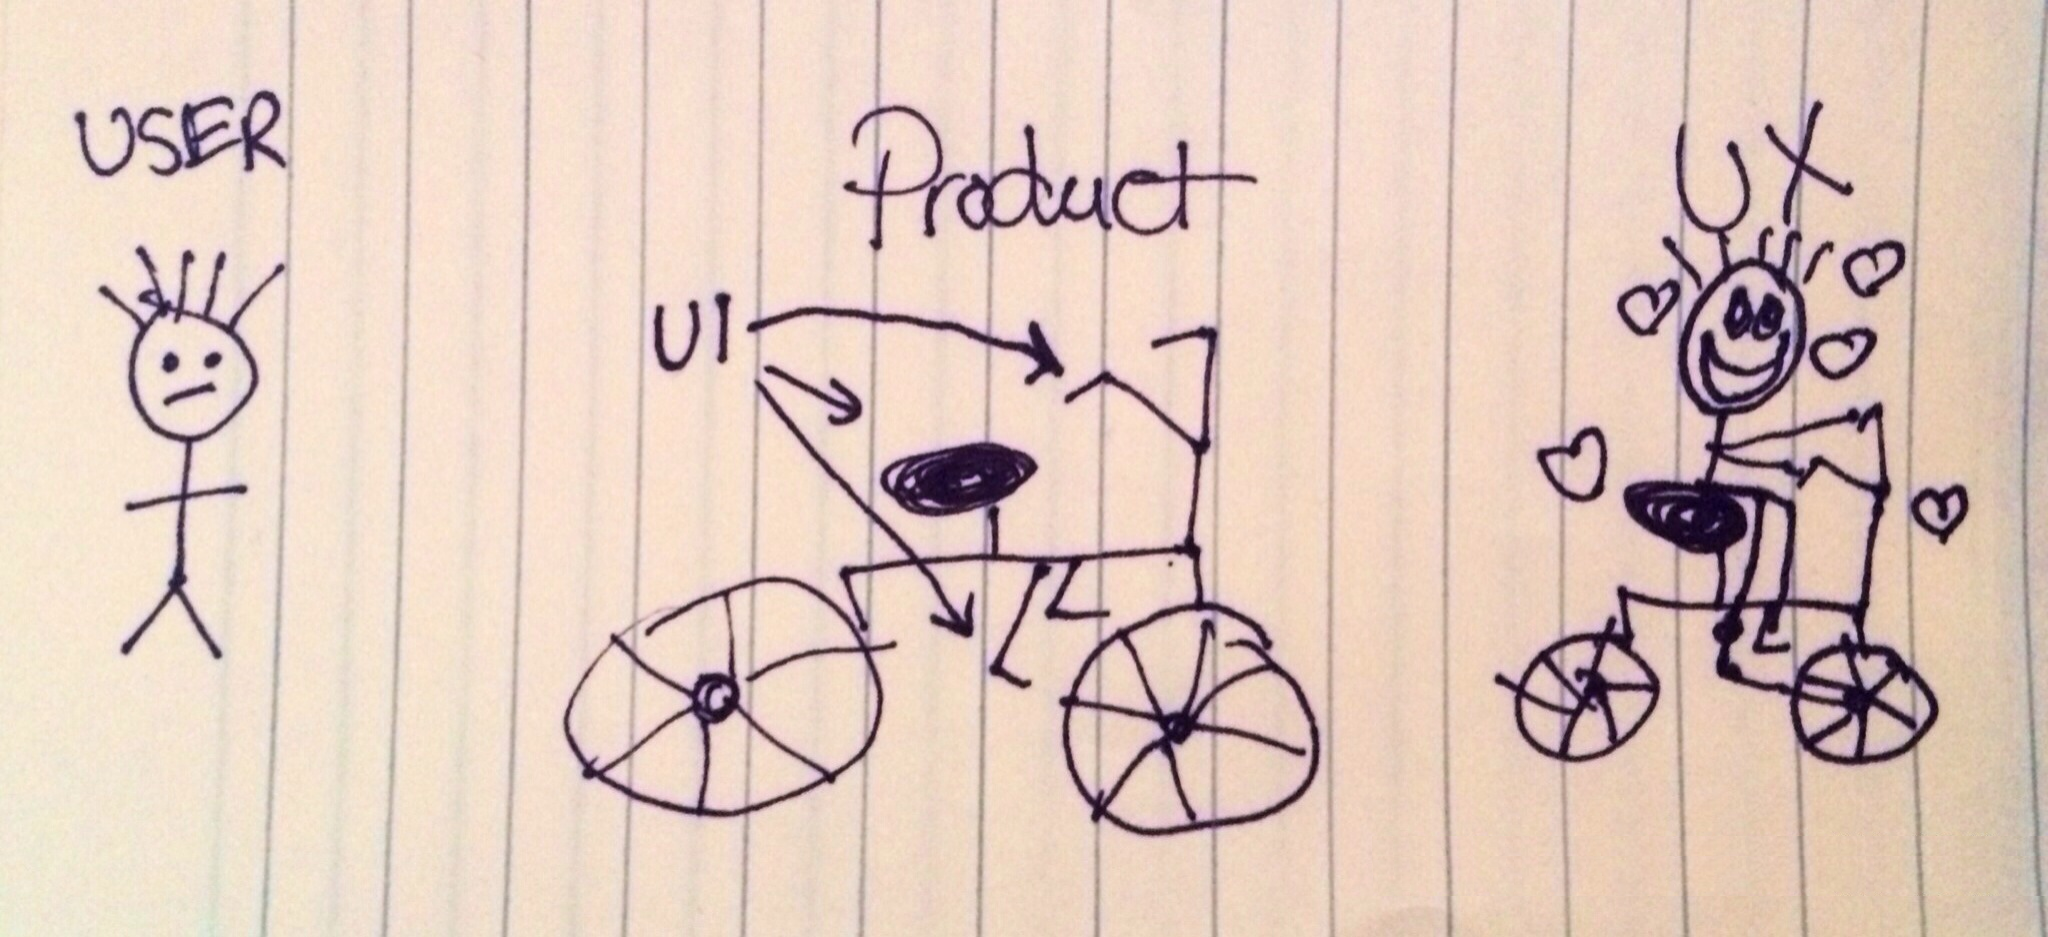 USER
Product
UX
UI